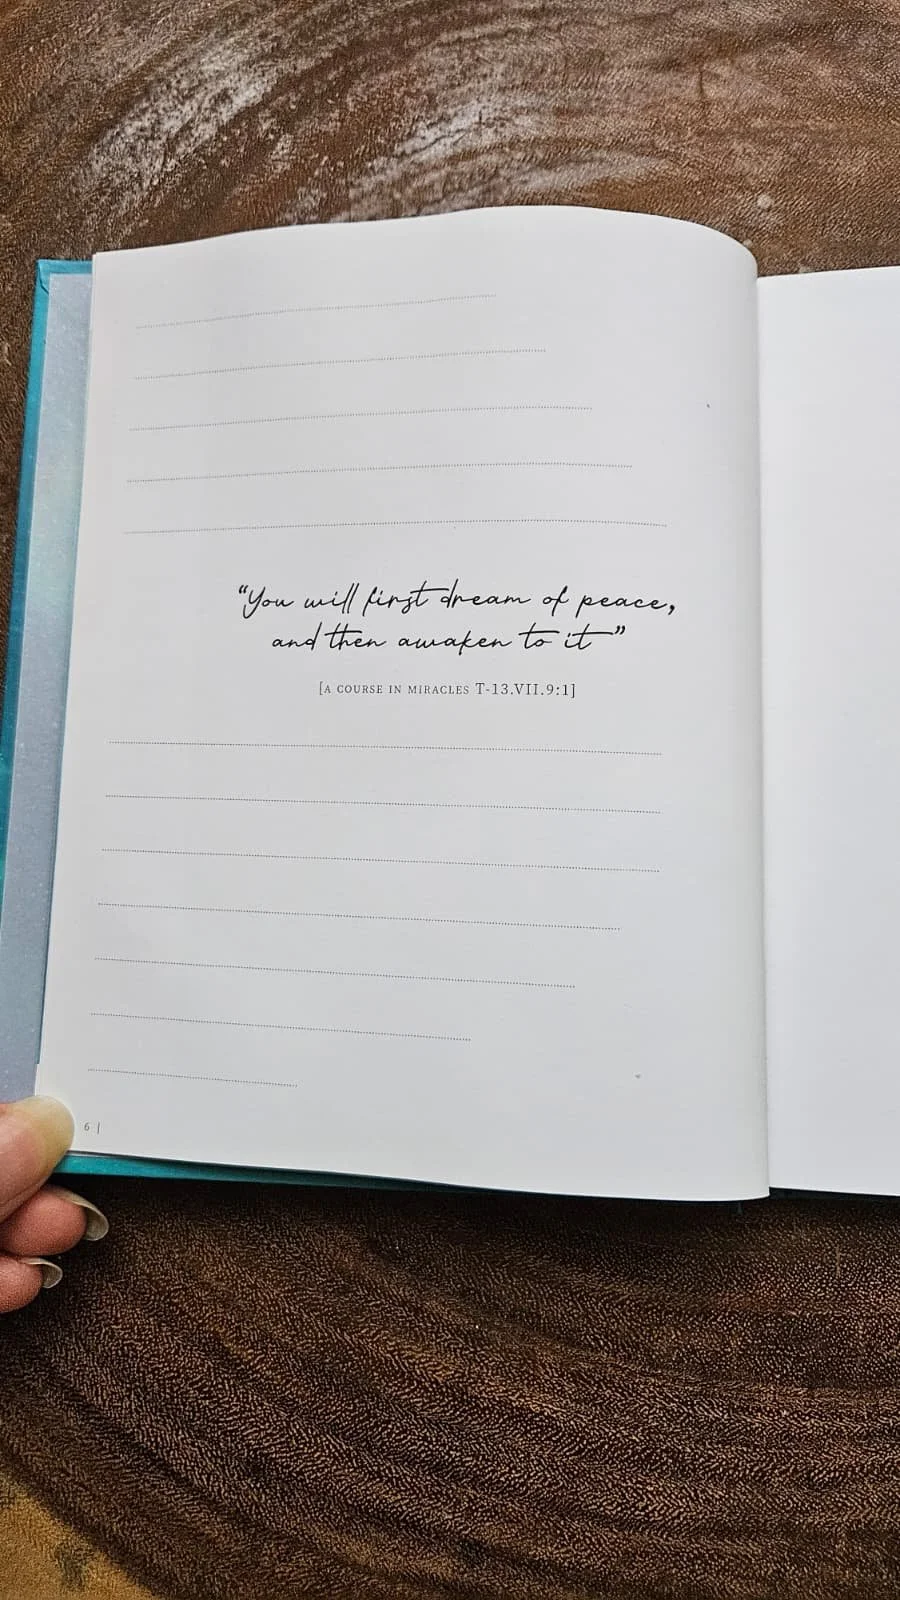 “You will first dream of peace,
and then awaken to it”
[A COURSE IN MIRACLES T-13.VII.9:1]
6 |